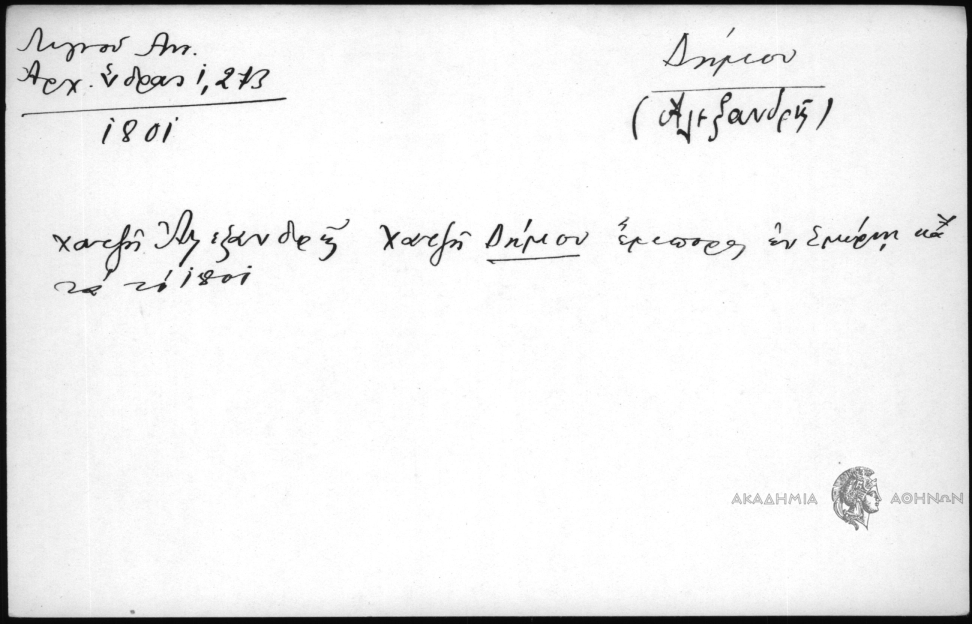 Λιγνού Αντ.
Αρχ. Ύδρας 1, 273
1801
Δήμιου
(Αλεξανδρῆ)
χαντζῆ Ἀλεξανδρῆ χαντζῆ Δήμιου ἔμπορος ἐν Σμύρνῃ κα
τά τό 1801
ΑΚΑΔΗΜΙΑ ΑΘΗΝΩΝ